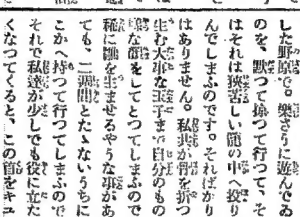 した野原で。樂さうに遊んでゐ
のを、默つて捕つて行つて、そ
はそれは狹苦しい籠の中へ投り
んでしまふのです。そればかり
はありません。私共が骨を折つ
生む大事な玉子まで自分のもの
な顏をしてとつてしまふので
稀に雛を生ませるやうな事があ
ても、二週間とたゝないうちに
こかへ持つて行つてしまふので
それで私達が少しでも役に立た
くなつてくると、この首をキユ